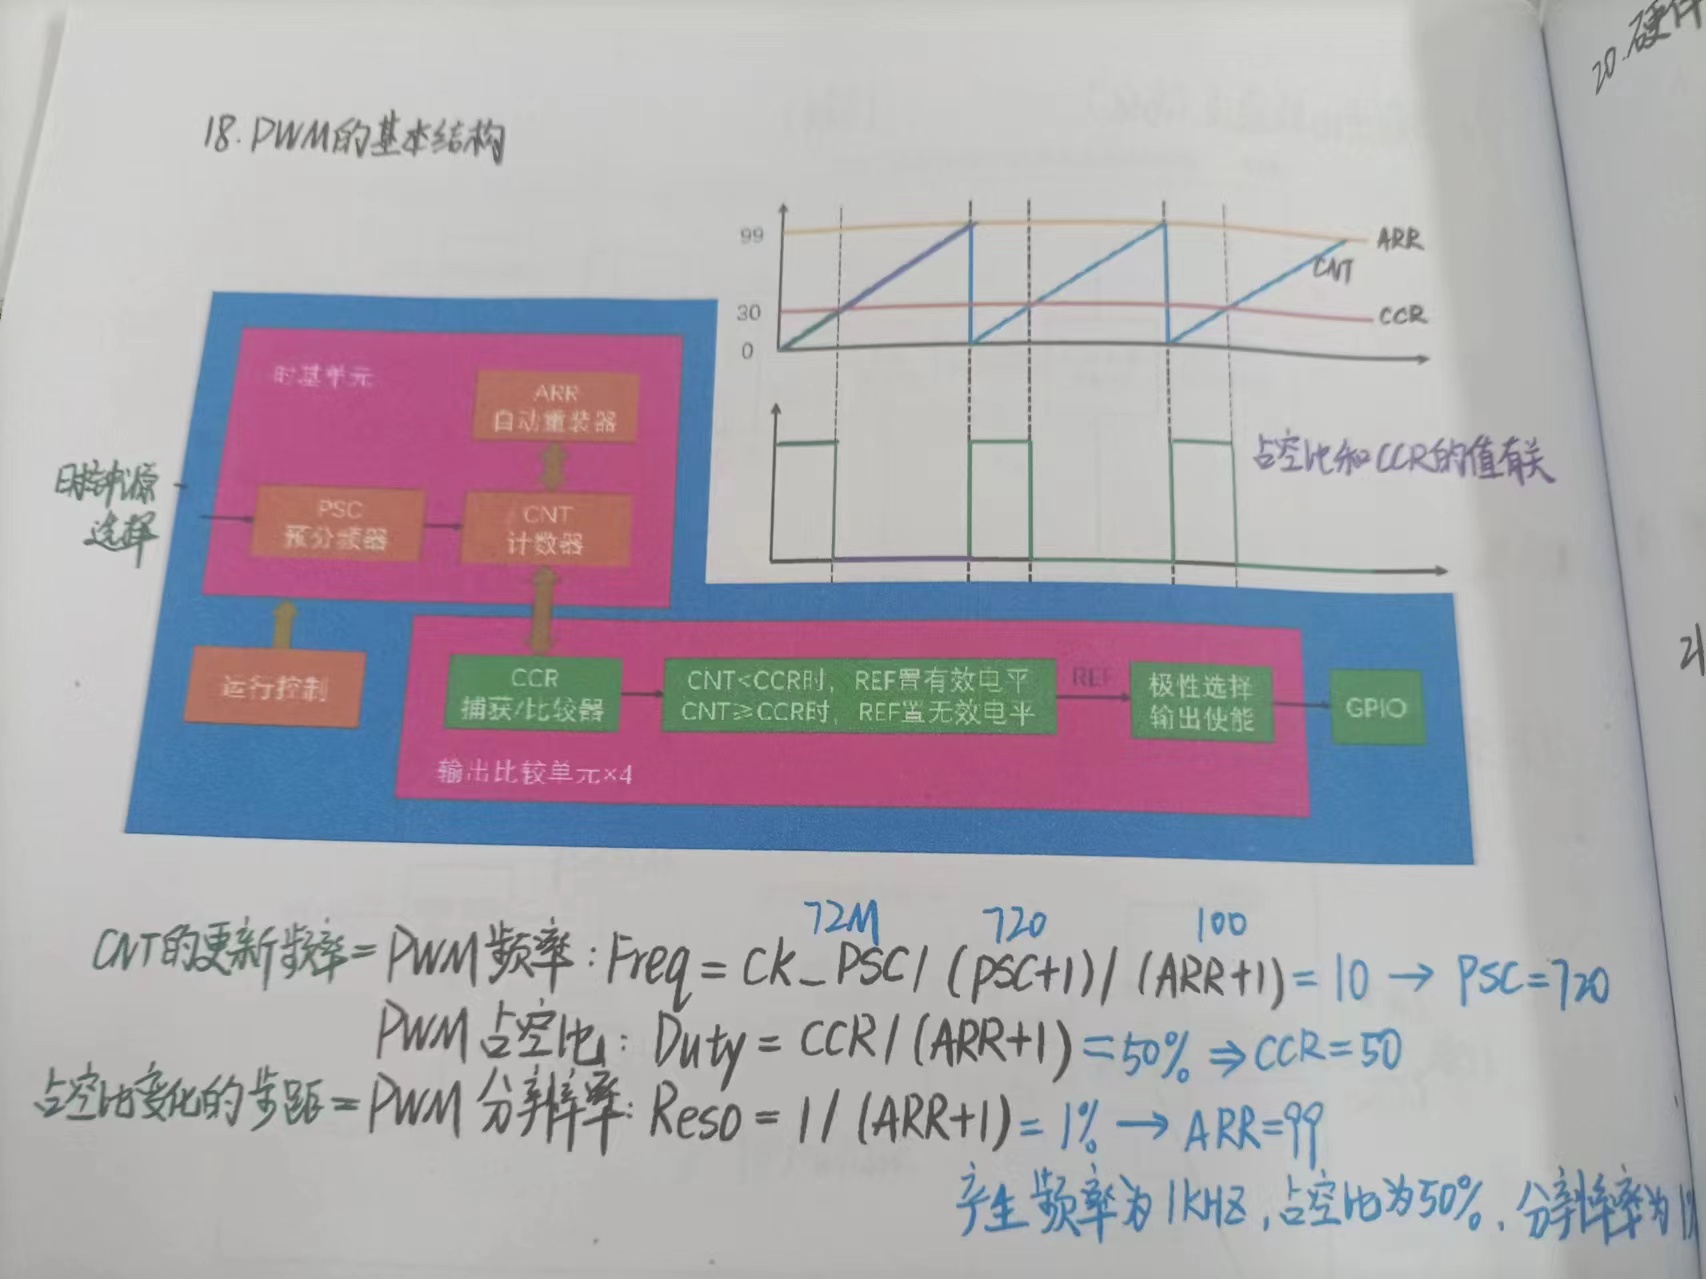 20.硬件
18.PWM的基本结构
99
ARR
CNT
30
CCR
0
时基单元
ARR
自动重装器
占空比和CCR的值有关
时钟源
选择
PSC
预分频器
CNT
计数器
运行控制
CCR
捕获/比较器
CNT<CCR时，REF置有效电平
CNT≥CCR时，REF置无效电平
REF
极性选择
输出使能
GPIO
输出比较单元×4
21
72M 720 100
CNT的更新频率=PWM频率:Freq=CK_PSC/(PSC+1)/(ARR+1)=10→PSC=720
PWM占空比:Duty=CCR/(ARR+1)=50%⇒CCR=50
占空比变化的步距=PWM分辨率:Reso=1/(ARR+1)=1%→ARR=99
产生频率为1KHZ,占空比为50%.分辨率为1